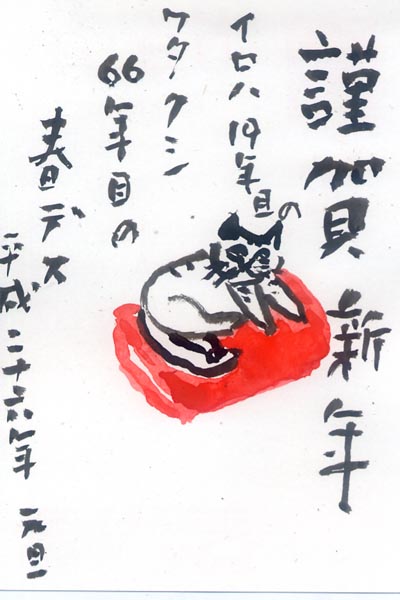 謹賀新年
イロハ19年目の
ワタクシ
66年目の
春デス
平成二十六年 元旦